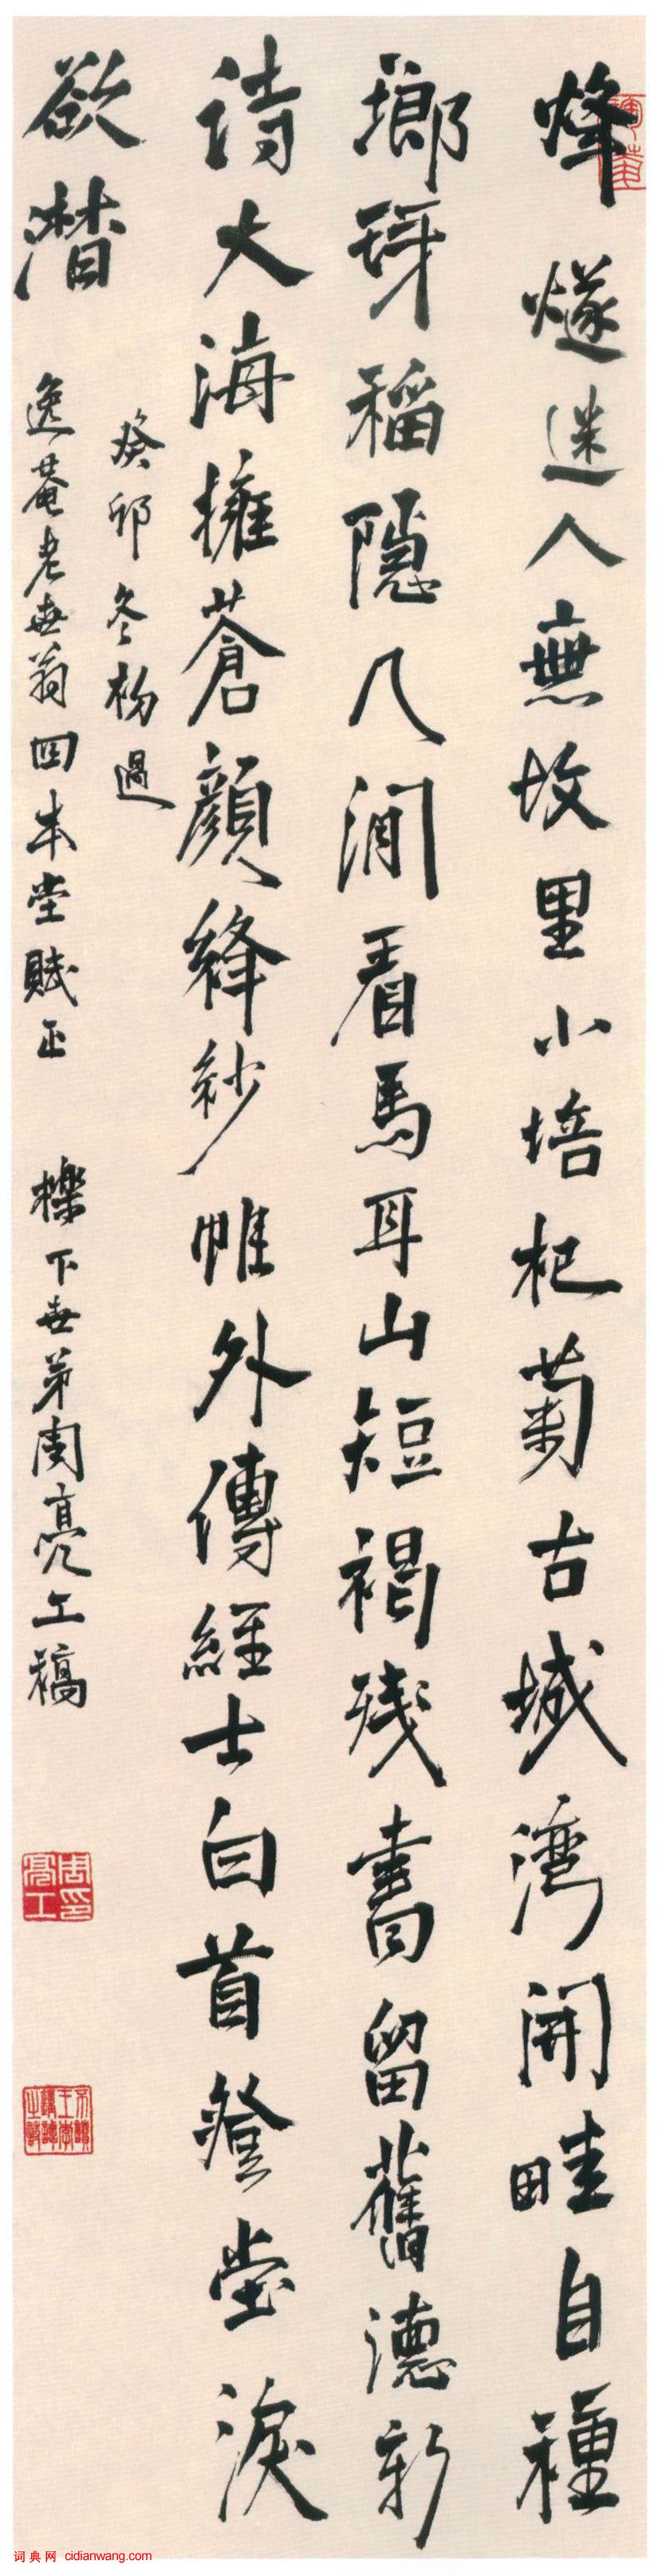 烽燧迷人無故里小培杞菊古城灣開畦自種
瑯琊稻隱几閒看馬耳山短褐殘書留舊德新
詩大海擁蒼顏絳紗帷外傳經士白首登堂淚
欲潸
癸卯冬杪過
逸菴老世翁四本堂賦正
櫟下世弟周亮工稿
周亮工印
词典网 cidianwang.com